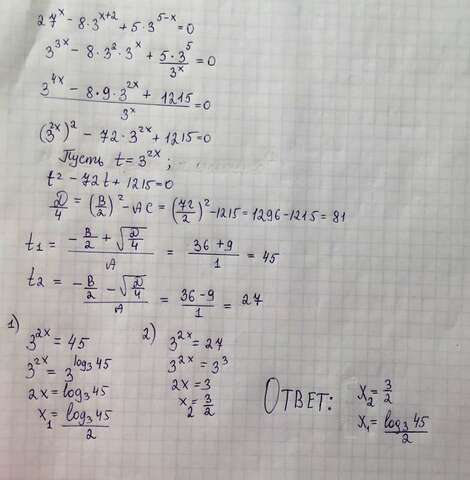 27^x - 8·3^{x+2} + 5·3^{5-x} = 0
3^{3x} - 8·3^2·3^x + \frac{5·3^5}{3^x} = 0
\frac{3^{4x} - 8·9·3^{2x} + 1215}{3^x} = 0
(3^{2x})^2 - 72·3^{2x} + 1215 = 0
Пусть t = 3^{2x};
t^2 - 72t + 1215 = 0
\frac{D}{4} = (\frac{B}{2})^2 - AC = (\frac{72}{2})^2 - 1215 = 1296 - 1215 = 81
t_1 = \frac{-\frac{B}{2} + \sqrt{\frac{D}{4}}}{A} = \frac{36+9}{1} = 45
t_2 = \frac{-\frac{B}{2} - \sqrt{\frac{D}{4}}}{A} = \frac{36-9}{1} = 27
1)
3^{2x} = 45
3^{2x} = 3^{log_3 45}
2x = log_3 45
x_1 = \frac{log_3 45}{2}
2)
3^{2x} = 27
3^{2x} = 3^3
2x = 3
x_2 = \frac{3}{2}
ОТВЕТ:
x_2 = \frac{3}{2}
x_1 = \frac{log_3 45}{2}